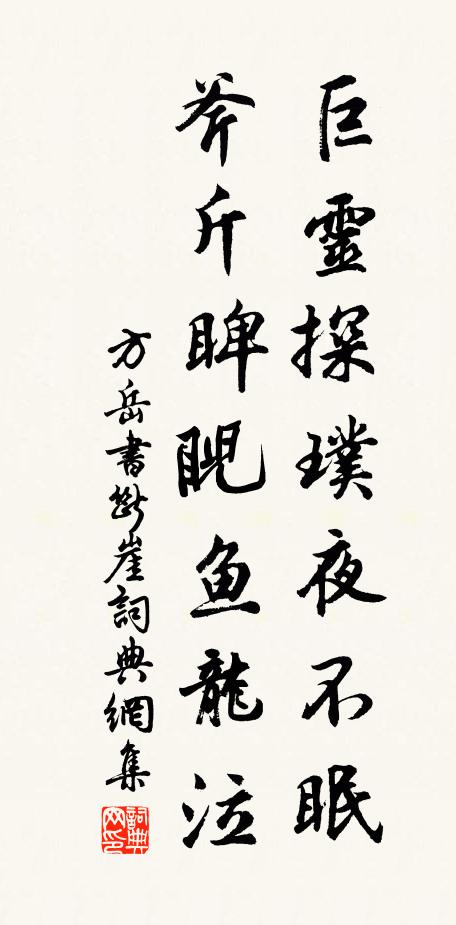 巨靈探璞夜不眠
斧斤睥睨鱼龍泣
方岳書斷崖詞典網集
詞典网印